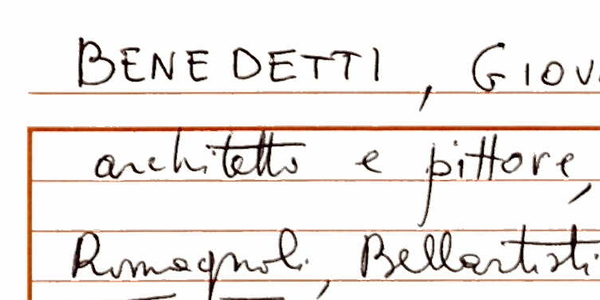 BENEDETTI, GIOV
architetto e pittore,
Romagnoli, Bellartisti